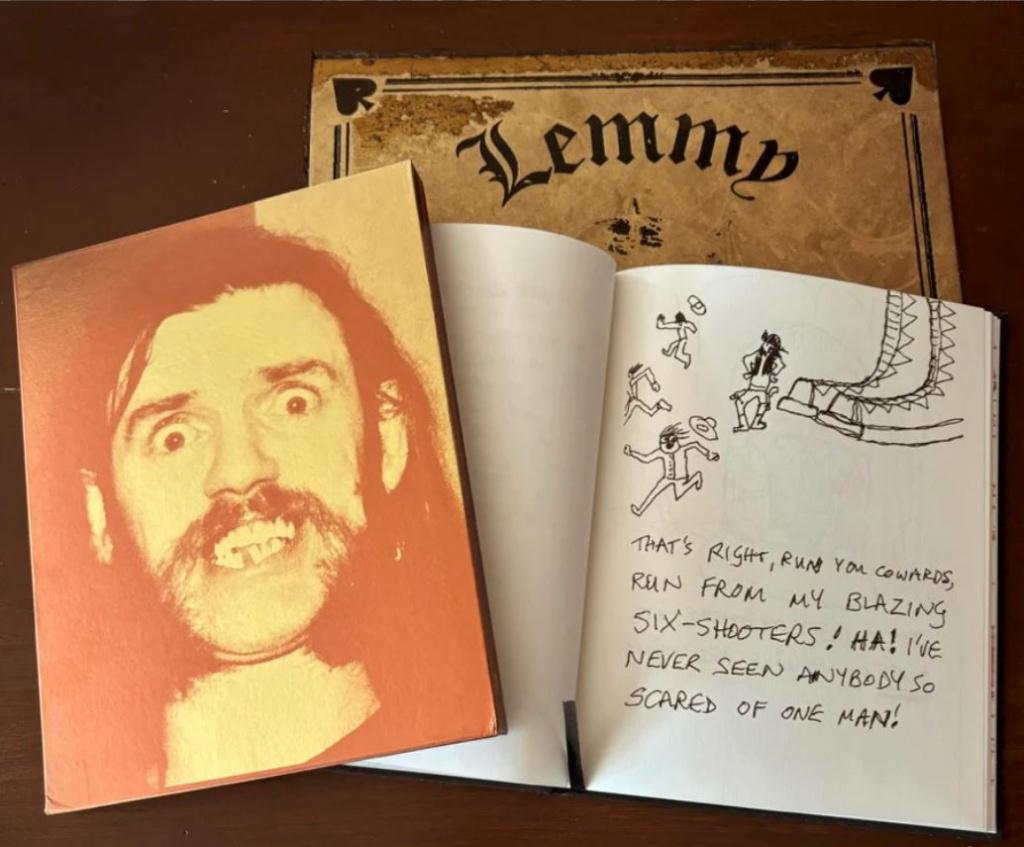 R
Lemmy
THAT'S RIGHT, RUN YOU COWARDS,
RUN FROM MY BLAZING
SIX-SHOOTERS! HA! I'VE
NEVER SEEN ANYBODY SO
SCARED OF ONE MAN!